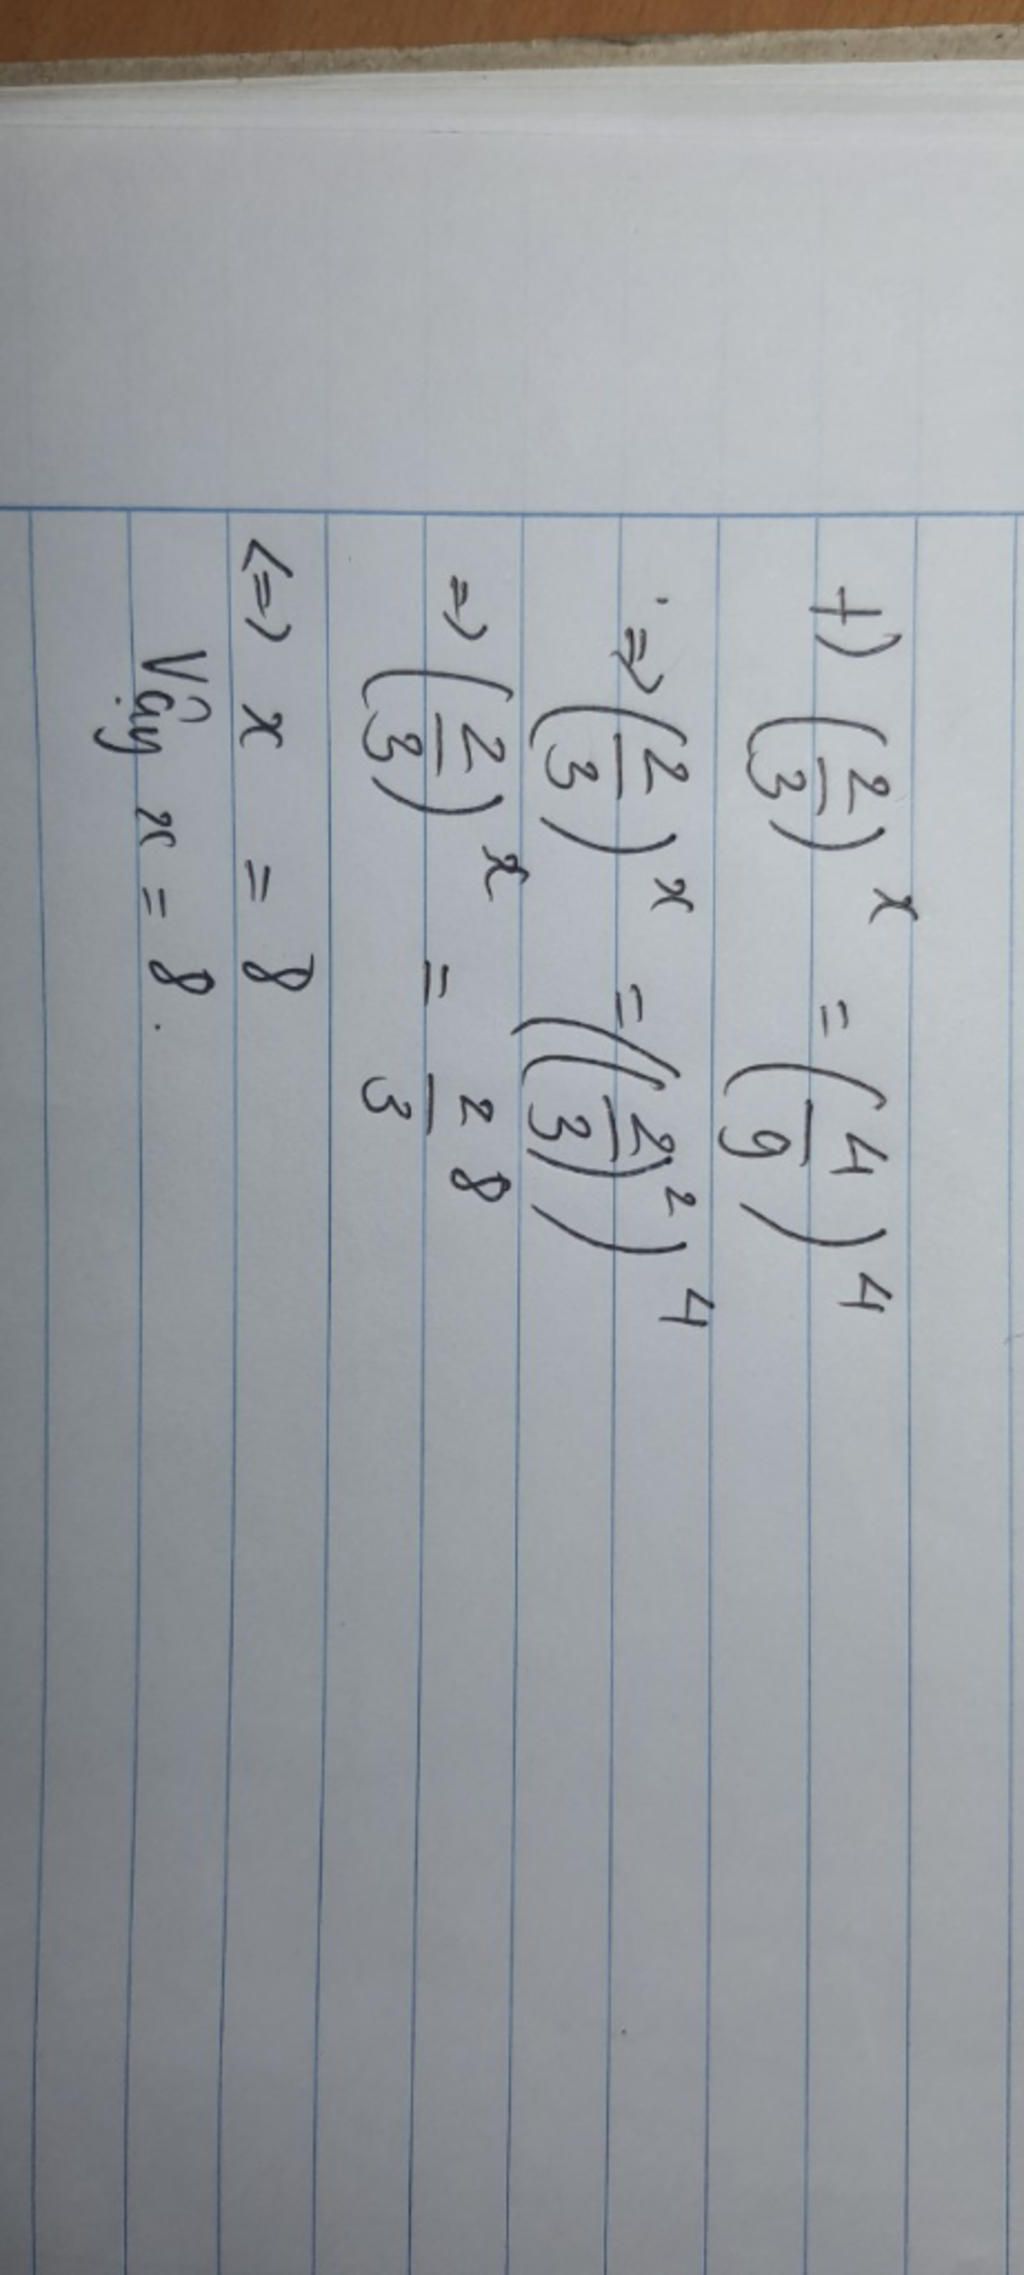 f) (2/3)^x = (4/9)^4
=> (2/3)^x = ((2/3)^2)^4
=> (2/3)^x = 2^8/3
<=> x = 8
Vậy x = 8.